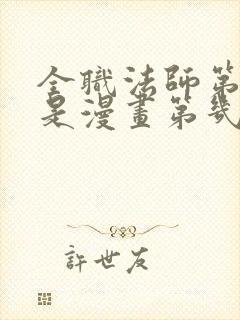 全職法師第
是漫畫第幾
許世友